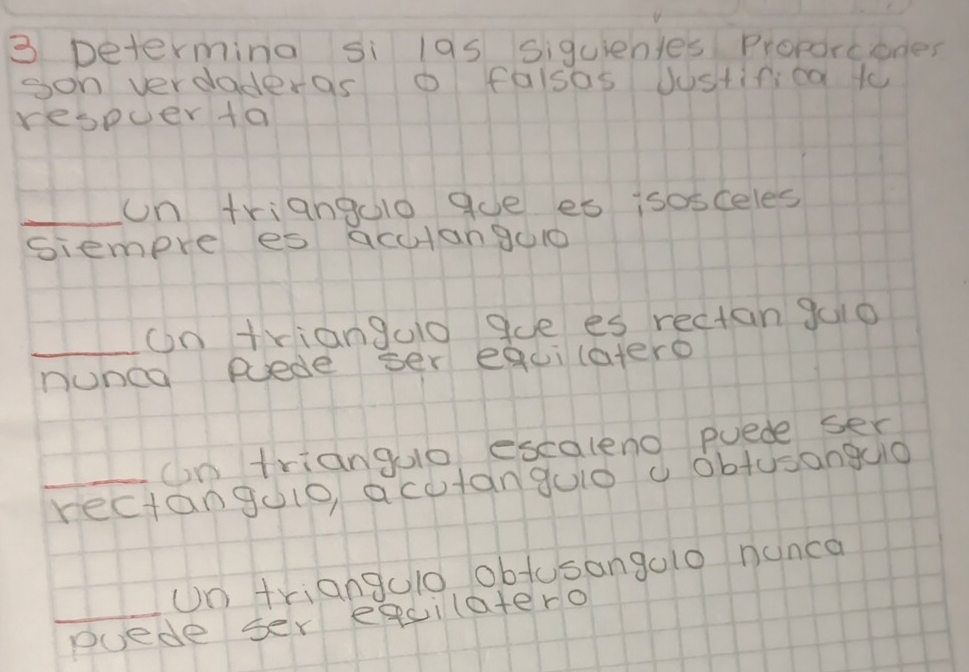 3 Determina si las siguientes Proporciones
son verdaderas o falsas Justifica tu
respuerta
____ Un triangulo que es isosceles
siempre es acutangulo
____ Un triangulo que es rectangulo
nunca puede ser equilatero
____ Un triangulo escaleno puede ser
rectangulo, acutangulo u obtusangulo
____ Un triangulo obtusangulo nunca
puede ser equilatero